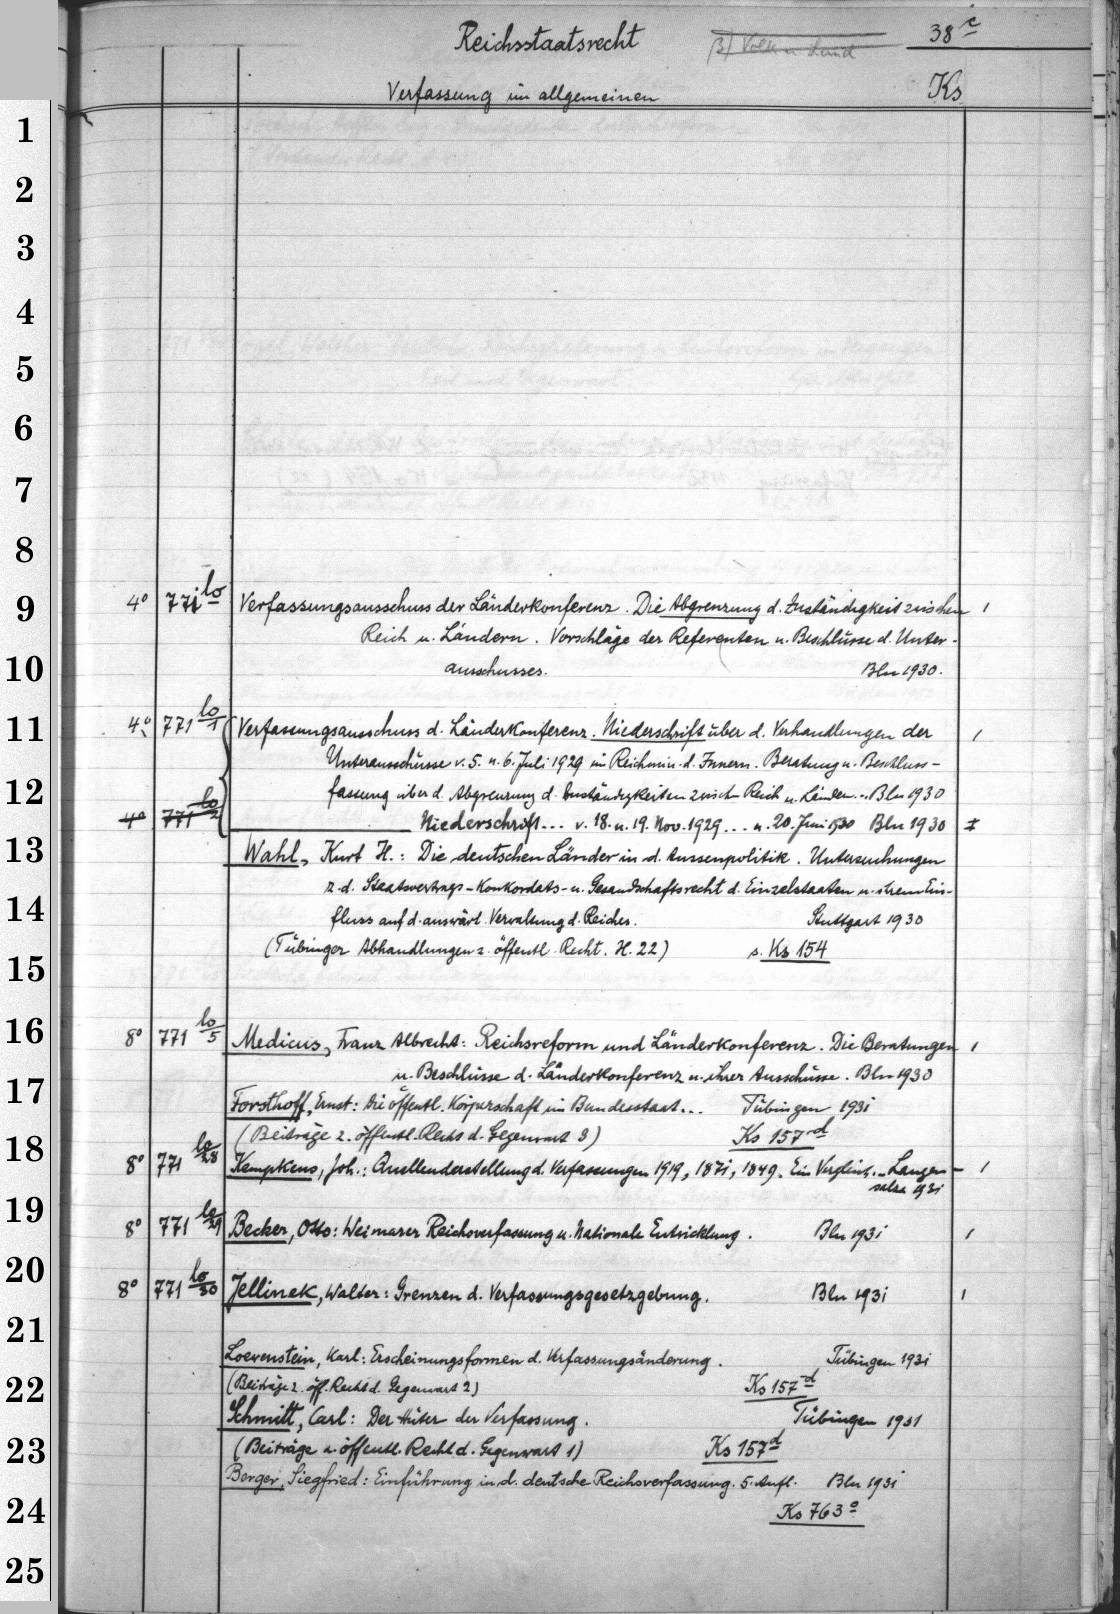 Reichsstaatsrecht β) Volk u. Land 38 c
Verfassung im allgemeinen Ks
1
2
3
4
5
6
7
8
9 4° 771 lo Verfassungsausschuss der Länderkonferenz. Die Abgrenzung d. Zuständigkeit zwischen
Reich u. Ländern. Vorschläge der Referenten u. Beschlüsse d. Unter-
10 ausschusses. Bln 1930.
11 4° 771 lo/1 Verfassungsausschuss d. Länderkonferenz. Niederschrift über d. Verhandlungen der
Unterausschüsse v. 5. u. 6. Juli 1929 im Reichmin. d. Innern. Beratung u. Beschluss-
12 fassung über d. Abgrenzung d. Zuständigkeiten zwisch. Reich u. Länden.. Bln 1930
4° 771 lo/2 Niederschrift... v. 18. u. 19. Nov. 1929... u. 20. Juni 1930 Bln 1930
13 Wahl, Kurt H.: Die deutschen Länder in d. Aussenpolitik. Untersuchungen
z. d. Staatsvertrags- Konkordats- u. Gesandschaftsrecht d. Einzelstaaten u. ihrem Ein-
14 fluss auf d. auswärt. Verwaltung d. Reiches. Stuttgart 1930
(Tübinger Abhandlungen z. öffentl. Recht. H. 22) s. Ks 154
15
16 8° 771 lo/5 Medicus, Franz Albrecht: Reichsreform und Länderkonferenz. Die Beratungen
u. Beschlüsse d. Länderkonferenz u. ihrer Ausschüsse. Bln 1930
17 Forsthoff, Ernst: Die öffentl. Körperschaft im Bundesstaat... Tübingen 1931
(Beiträge z. öffentl. Recht d. Gegenwart 3) Ks 157 d
18 8° 771 lo/28 Kempkens, Joh.: Quellendarstellung d. Verfassungen 1919, 1871, 1849. Ein Vergleich. - Langen-
salza 1931
19 8° 771 lo/29 Becker, Otto: Weimarer Reichsverfassung u. Nationale Entwicklung. Bln 1931
20 8° 771 lo/30 Jellinek, Walter: Grenzen d. Verfassungsgesetzgebung. Bln 1931
21
Loewenstein, Karl: Erscheinungsformen d. Verfassungsänderung. Tübingen 1931
22 (Beiträge z. öff. Recht d. Gegenwart 2) Ks 157 d
Schmitt, Carl: Der Hüter der Verfassung. Tübingen 1931
23 (Beiträge z. öffentl. Recht d. Gegenwart 1) Ks 157 d
Berger, Siegfried: Einführung in d. deutsche Reichsverfassung. 5. Aufl. Bln 1931
24 Ks 763 o
25